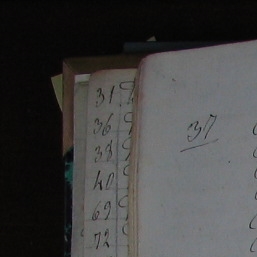 31
36
38
40
69
72
37